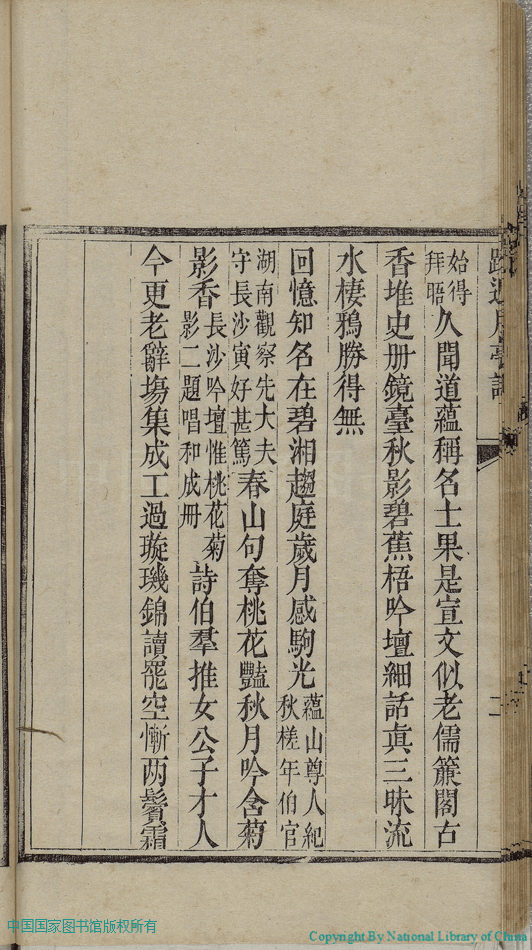 始得拜晤久聞道蘊稱名士果是宣文似老儒簾閣古
香堆史册鏡臺秋影碧蕉梧吟壇細話眞三昧流
水棲鴉勝得無
回憶知名在碧湘趨庭歲月感駒光蘊山尊人紀秋槎年伯官
湖南觀察先大夫守長沙寅好甚篤春山句奪桃花豔秋月吟含菊
影香長沙吟壇惟桃花菊影二題唱和成册詩伯羣推女公子才人
今更老辭塲集成工過璇璣錦讀罷空慚两鬢霜
二
中国国家图书馆版权所有
Copyright By National Library of China